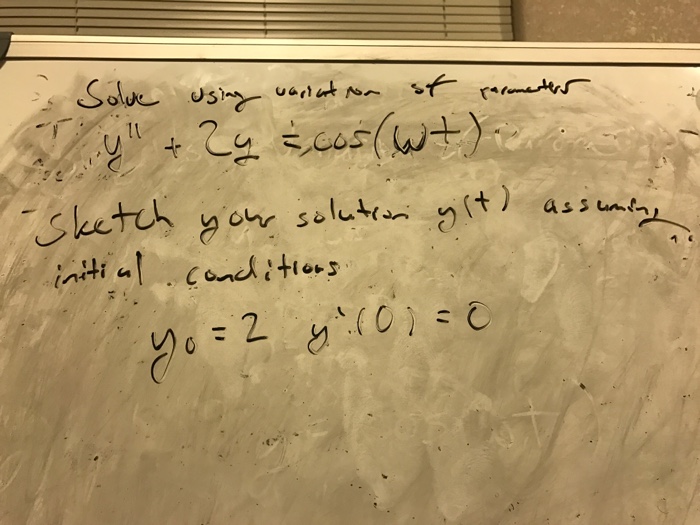 Solve using variation of parameters
y'' + 2y = cos(wt)
Sketch your solution y(t) assuming
initial conditions
y0 = 2 y'(0) = 0